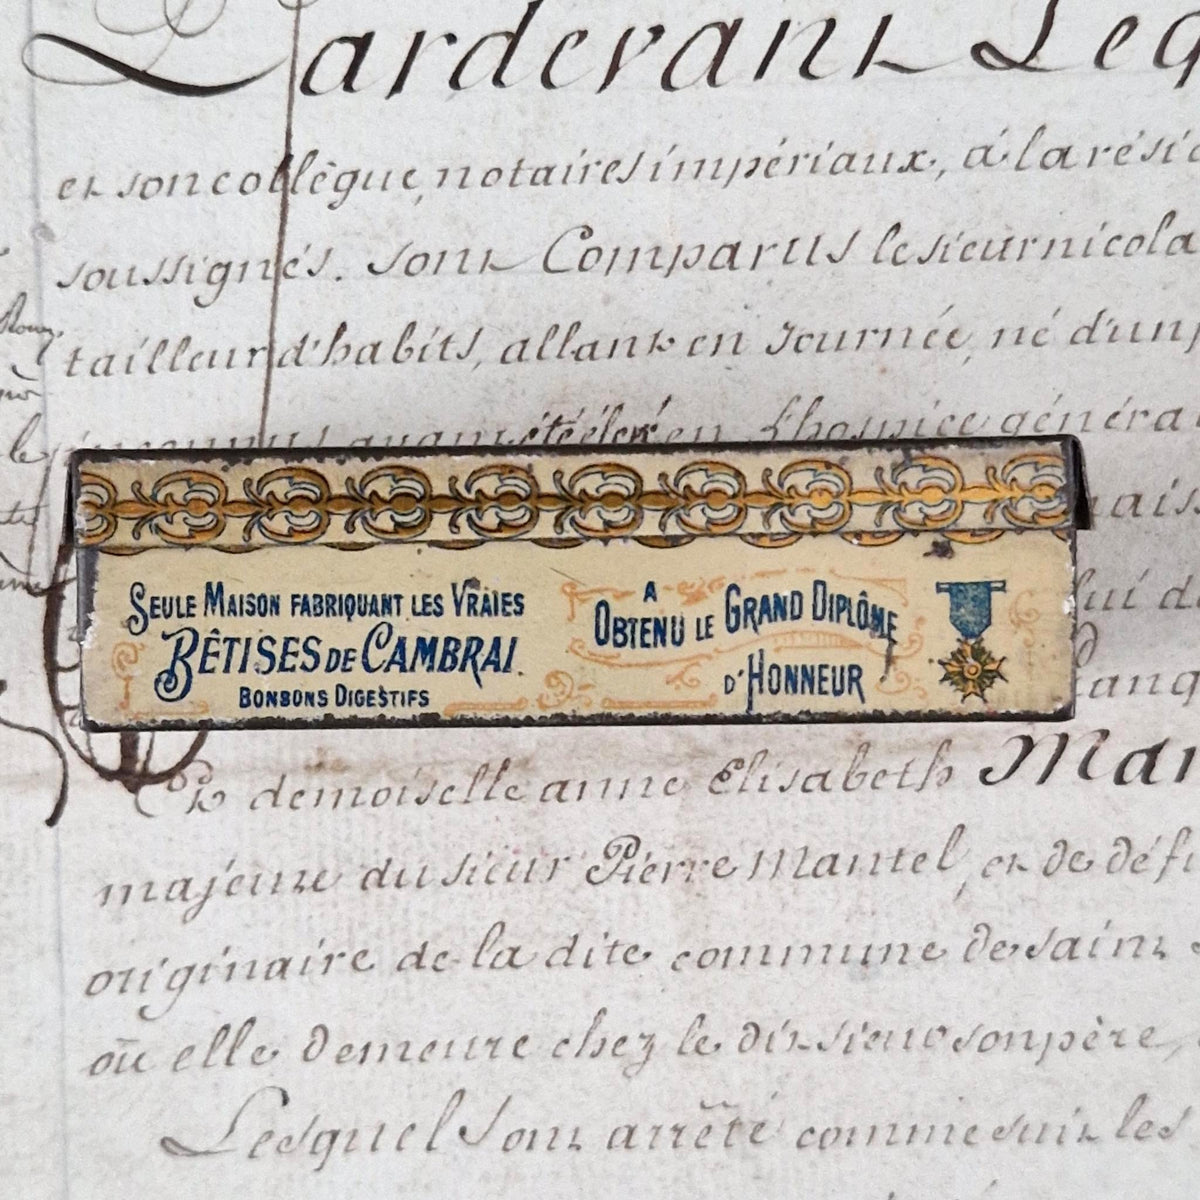 Pardevant Leq
et son collègue, notaires impériaux, à la rési
soussignés. Sont Comparus le sieur nicola
tailleur d'habits, allant en Journée, né d'un
été élevé en l'hospice généra
SEULE MAISON FABRIQUANT LES VRAIES
BÊTISES DE CAMBRAI.
BONBONS DIGESTIFS
A
OBTENU LE GRAND DIPLÔME
D'HONNEUR
Et demoiselle anne Elisabeth Man
majeure du sieur Pierre Mantel, et de défu
originaire de la dite commune de saint
où elle demeure chez le dit sieur son père,
Lesquels sont arrêté comme suit les